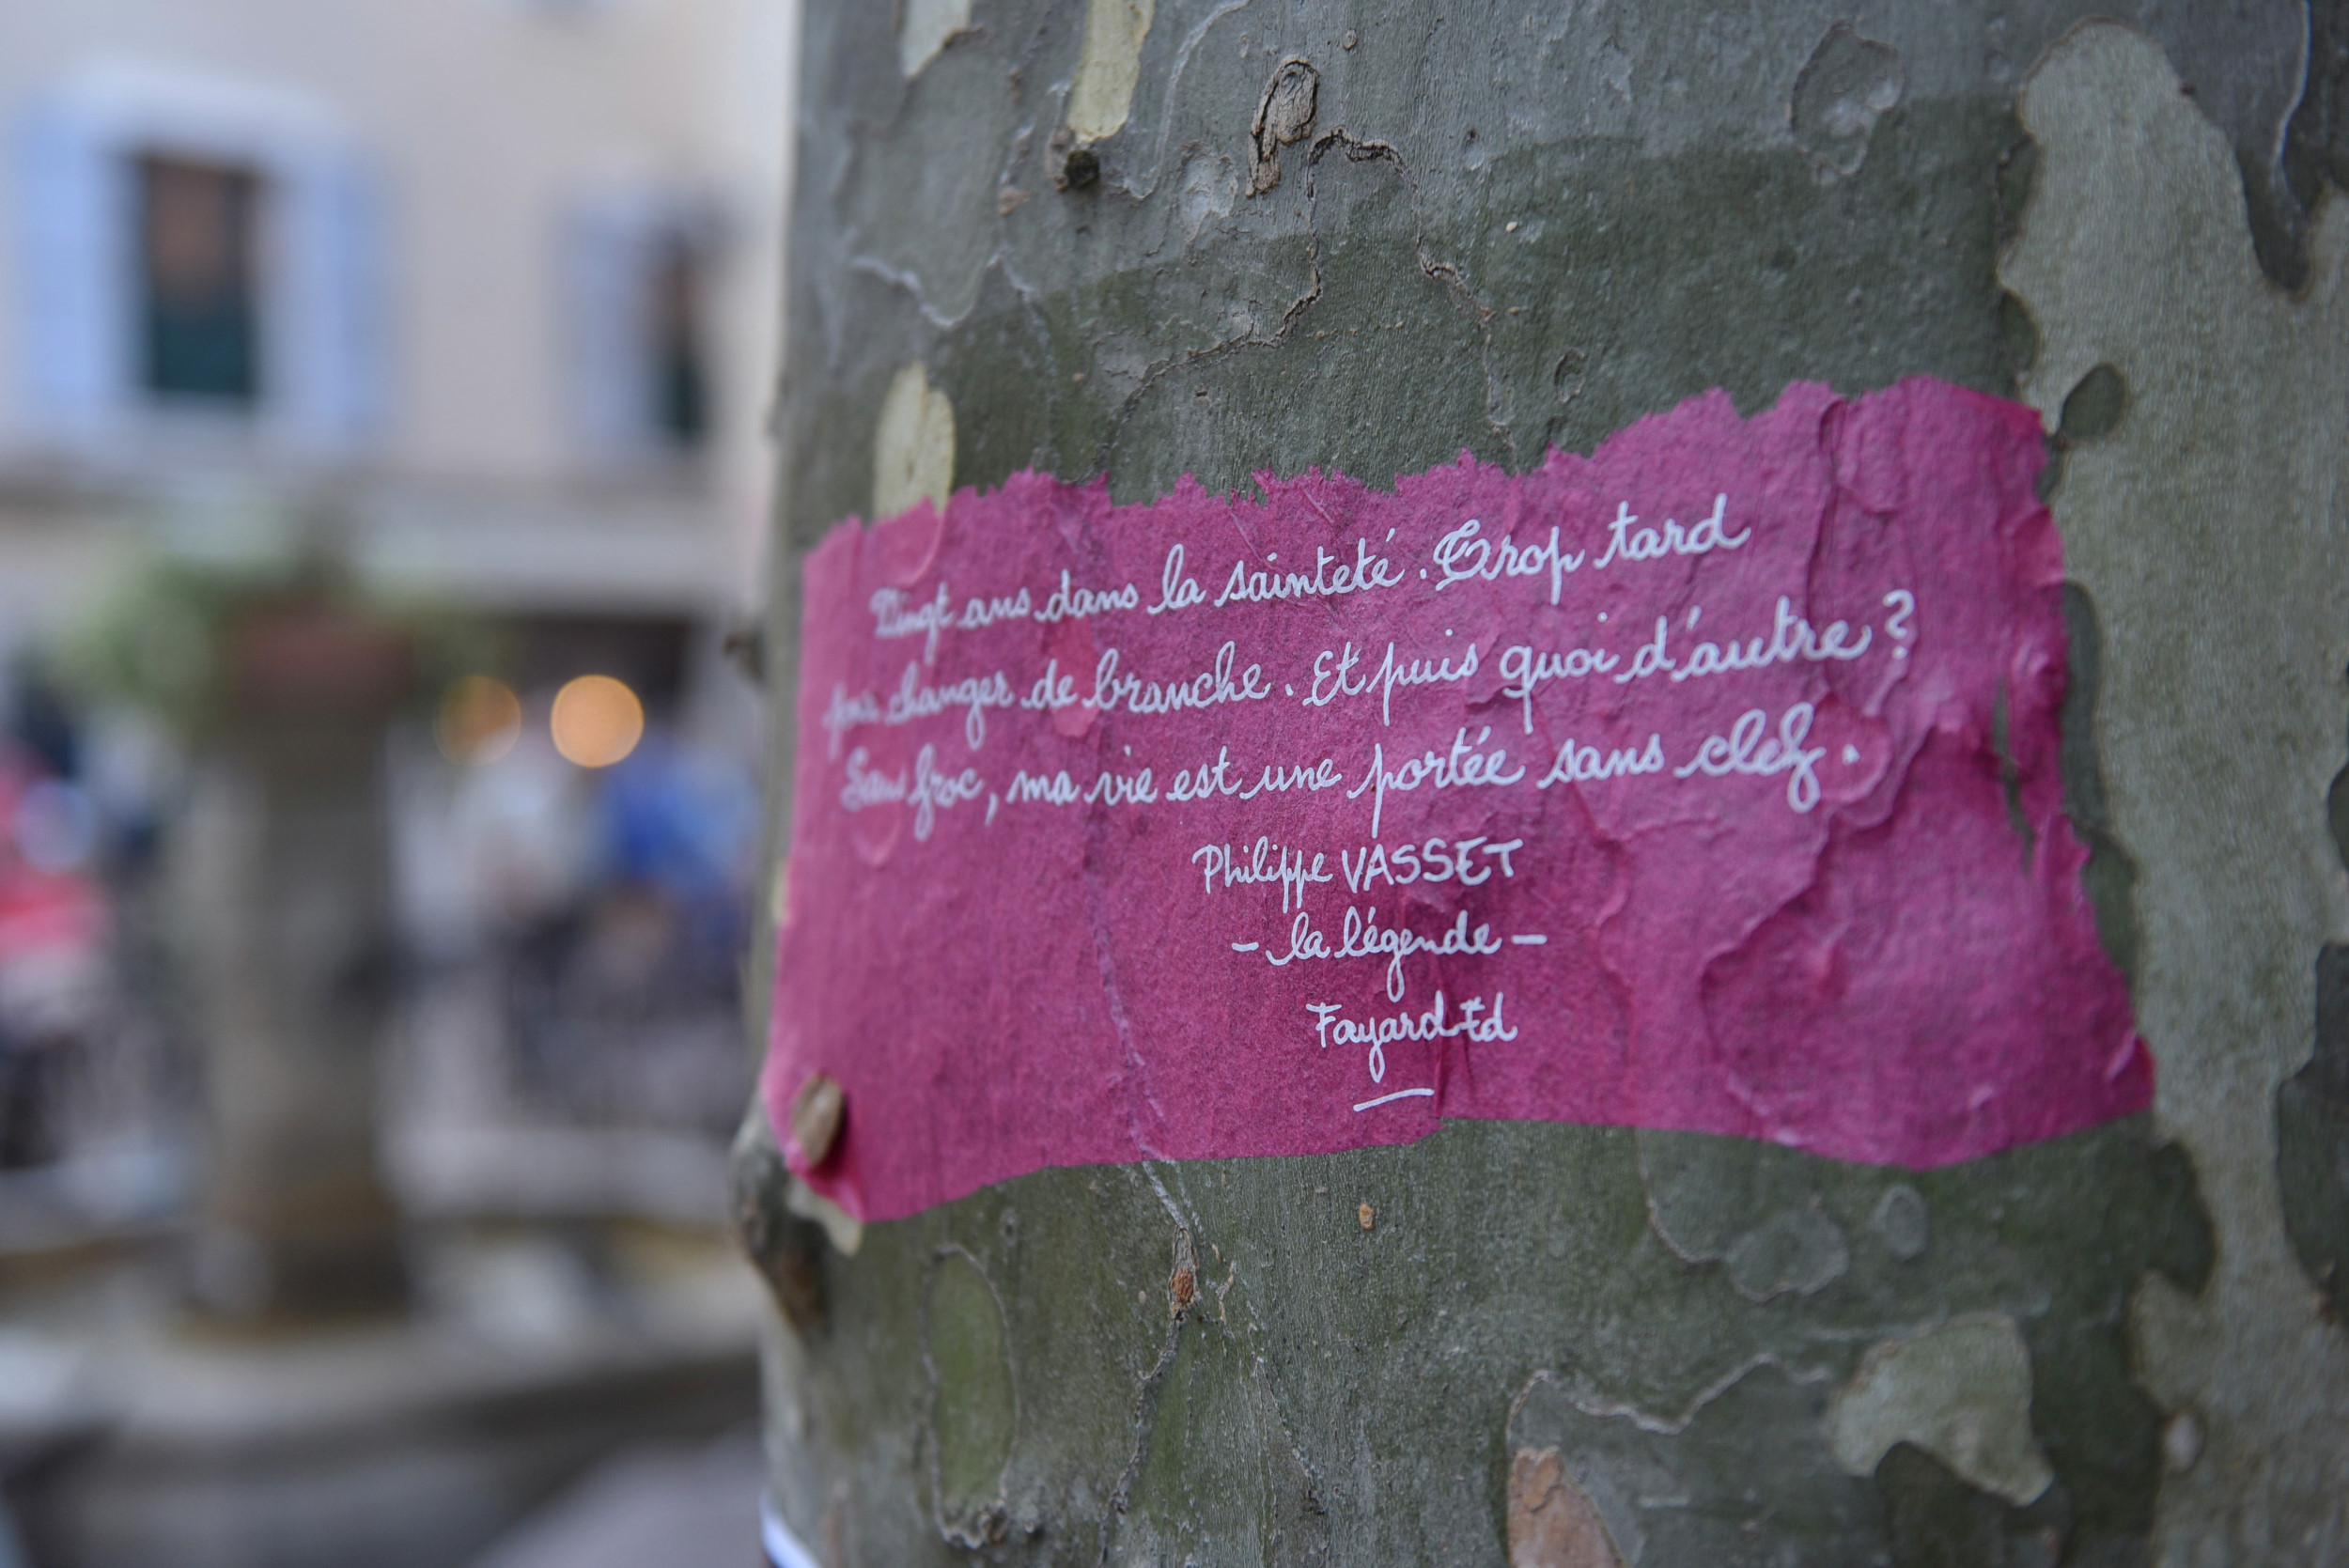 Vingt ans dans la sainteté. Trop tard
pour changer de branche. Et puis quoi d'autre ?
Sans froc, ma vie est une portée sans clef.
Philippe VASSET
- la légende -
Fayard Ed